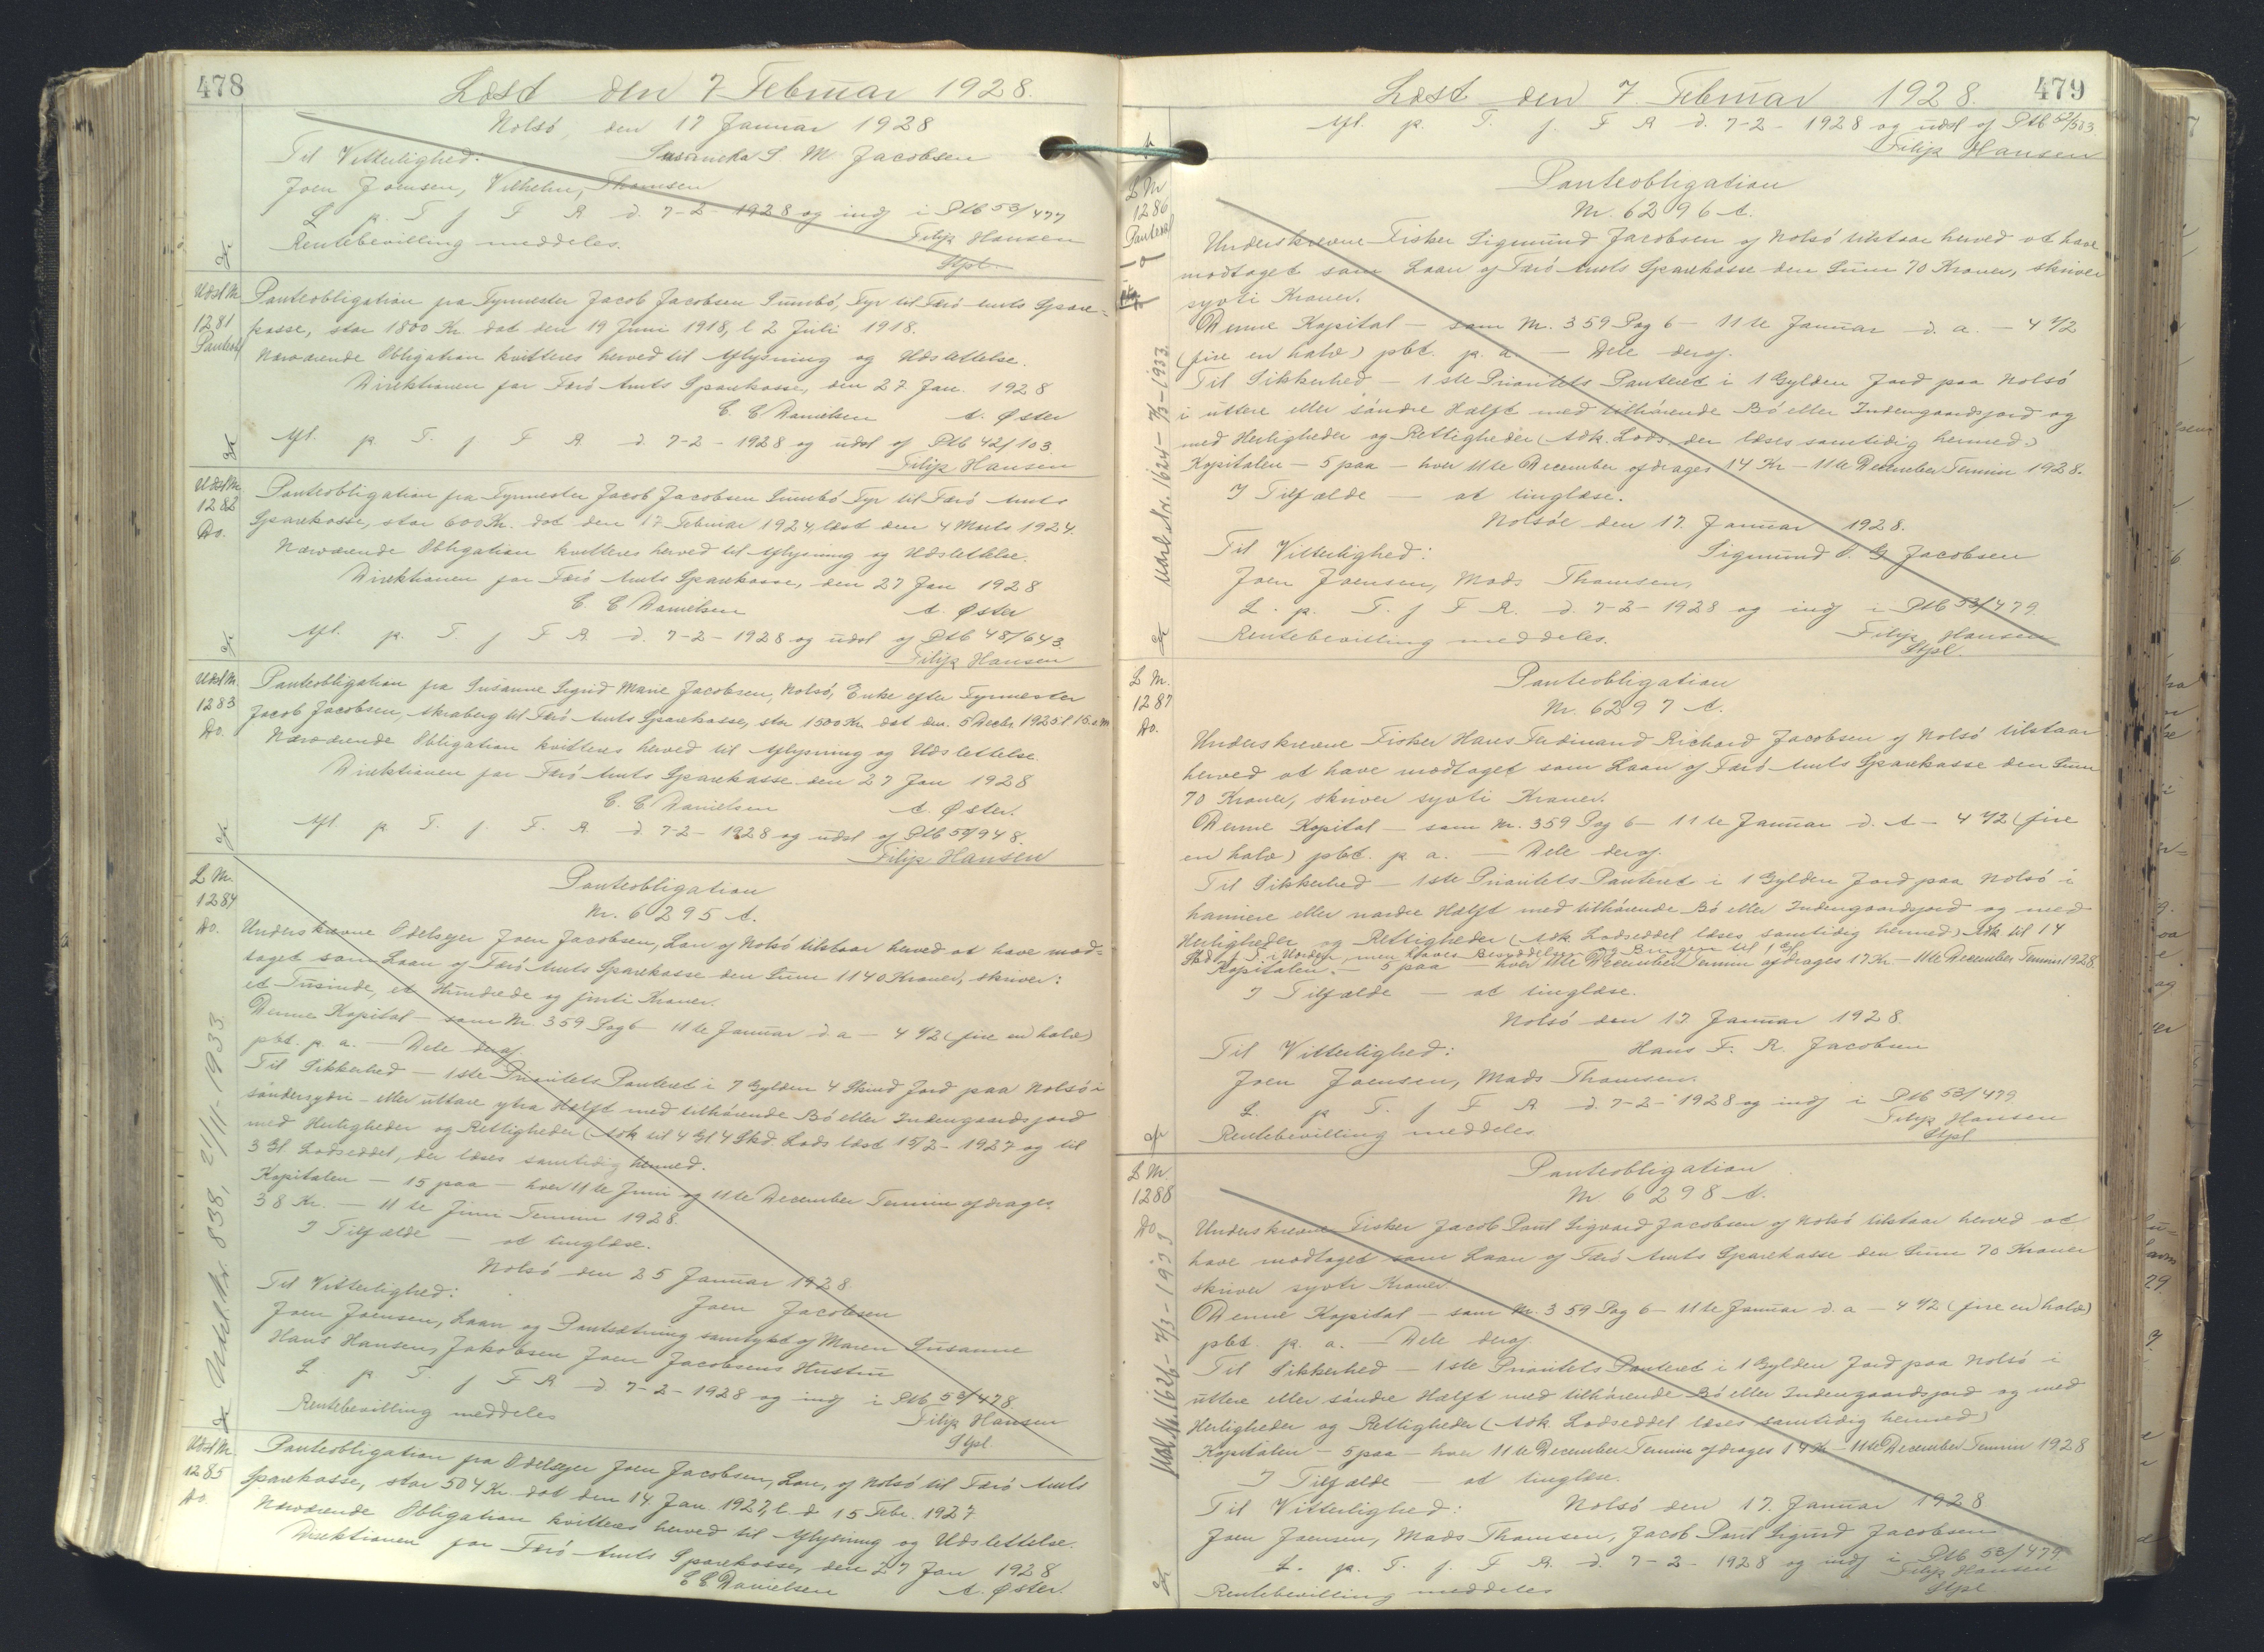 478
Læst den 7 Februar 1928.
Nolsö, den 17 Januar 1928
Til Vitterlighed: Susanna S. M Jacobsen
Joen Joensen, Vilhelm Thomsen
L p. T. f F R. d. 7-2-1928 og indf i Ptb 53/477
Rentebevilling meddeles. Filip Hansen
Stpl.
Udsl Nr.
1281
Panteobl
Panteobligation fra Fyrmester Jacob Jacobsen Sumbö, Fyr til Færö Amts Spare-
kasse, stor 1800 Kr. dat den 19 Juni 1918, l 2 Juli 1918.
Nærværende Obligation kvitteres herved til Aflysning og Udslettelse.
Direktionen for Færö Amts Sparekasse, den 27 Jan. 1928
C. C Danielsen A. Øster
Afl. p. T. f F R d 7-2-1928 og udsl af Ptb 42/103.
Filip Hansen
Udsl Nr.
1282
Do.
Panteobligation fra Fyrmester Jacob Jacobsen Sumbö Fyr til Færö Amts
Sparekasse, stor 600 Kr. dat den 17 Februar 1924, læst den 4 Marts 1924.
Nærværende Obligation kvitteres herved til Aflysning og Udslettelse.
Direktionen for Færö Amts Sparekasse, den 27 Jan 1928
C C Danielsen A. Øster
Afl. p. T. f F R d. 7-2-1928 og udsl af Ptb 48/643.
Filip Hansen
Udsl Nr.
1283
Do.
Panteobligation fra Susanne Sigrid Marie Jacobsen, Nolsö, Enke efter Fyrmester
Jacob Jacobsen, Akraberg til Færö Amts Sparekasse, stor 1500 Kr. dat den 5 Decbr 1925 l 15. s. M
Nærværende Obligation kvitteres herved til Aflysning og Udslettelse.
Direktionen for Færö Amts Sparekasse den 27 Jan 1928
C. C. Danielsen A. Øster.
Afl. p T. f. F. R. d. 7-2-1928 og udsl af Ptb 50/948.
Filip Hansen
L Nr.
1284
Do.
Panteobligation
Nr. 6295 A.
Underskrevne Odelsejer Joen Jacobsen, Lon af Nolsö tilstaar herved at have mod-
taget som Laan af Færö Amts Sparekasse den Sum 1140 Kroner, skriver:
et Tusinde, et Hundrede og firti Kroner.
Denne Kapital — som Nr. 359 Pag 6 — 11te Januar d. a — 4 1/2 (fire en halv)
pbt. p. a. — Dele deraf.
Til Sikkerhed — 1ste Prioritets Panteret i 7 Gylden 4 Skind Jord paa Nolsö i
söndersydri - eller uttare ytra Hælft med tilhörende Bö eller Indengaardsjord
med Herligheder og Rettigheder (Adk til 4 Gl 4 Skd. Lods læst 15/2-1927 og til
3 Gl Lodseddel, der læses samtidig hermed.
Kapitalen — 15 paa — hver 11te Juni og 11te December Termin afdrages
38 Kr. — 11te Juni Termin 1928.
I Tilfælde — at tinglæse.
Nolsö den 25 Januar 1928.
Til Vitterlighed: Joen Jacobsen
Joen Joensen, Laan og Pantsætning samtykt af Maren Susanne
Hans Hansen, Jakobsen Joen Jacobsens Hustru
L p. T. f F R d 7-2-1928 og indf i Ptb 53/478.
Rentebevilling meddeles Filip Hansen
Stpl
Udsl. Nr. 838, 21/11-1933
Udsl Nr.
1285
Do.
Panteobligation fra Odelsejer Joen Jacobsen, Lon, af Nolsö til Færö Amts
Sparekasse, stor 504 Kr. dat den 14. Jan 1927, l. d 15 Febr. 1927.
Nærværende Obligation kvitteres herved til Aflysning og Udslettelse.
Direktionen for Færö Amts Sparekasse, den 27 Jan 1928
C C Danielsen A. Øster.
479
Læst den 7. Februar 1928.
Afl. p. T. f. F R d. 7-2-1928 og udsl af Ptb 52/503.
Filip Hansen
L Nr
1286
Panteobl
Panteobligation
Nr. 6296 A.
Underskrevne Fisker Sigmund Jacobsen af Nolsö tilstaar herved at have
modtaget som Laan af Færö Amts Sparekasse den Sum 70 Kroner, skriver
syvti Kroner.
Denne Kapital — som Nr. 359 Pag 6 — 11te Januar d. a. — 4 1/2
(fire en halv) pbt. p. a. — Dele deraf.
Til Sikkerhed — 1ste Prioritets Panteret i 1 Gylden Jord paa Nolsö
i uttere eller söndre Hælft med tilhörende Bö eller Indengaardsjord og
med Herligheder og Rettigheder (Adk. Lods. der læses samtidig hermed.)
Kapitalen — 5 paa — hver 11te December afdrages 14 Kr — 11te December Termin 1928.
I Tilfælde — at tinglæse.
Nolsöe den 17. Januar 1928.
Til Vitterlighed: Sigmund O. G Jacobsen
Joen Joensen, Mads Thomsen,
L. p. T. f F R. d. 7-2-1928 og indf i Ptb 53/479.
Rentebevilling meddeles. Filip Hansen
Stpl.
L Nr.
1287
Do.
Panteobligation
Nr. 6297 A.
Underskrevne Fisker Hans Ferdinand Richard Jacobsen af Nolsö tilstaar
herved at have modtaget som Laan af Færö Amts Sparekasse den Sum
70 Kroner, skriver syvti Kroner.
Denne Kapital — som Nr. 359 Pag 6 — 11te Januar d. A — 4 1/2 (fire
en halv) pbt. p a. — Dele deraf.
Til Sikkerhed — 1ste Prioritets Panteret i 1 Gylden Jord paa Nolsö i
hamiere eller nordre Hælft med tilhörende Bö eller Indengaardsjord og med
Herligheder og Rettigheder (Adk. Lodseddel læses samtidig hermed.) Adk. til 14
Kapitalen. — 5 paa — hver 11te December Termin afdrages 17 Kr — 11te December Termin 1928.
I Tilfælde — at tinglæse.
Nolsö den 17 Januar 1928.
Til Vitterlighed: Hans F. R. Jacobsen
Joen Joensen, Mads Thomsen.
L. p T. f F R d. 7-2-1928 og indf i Ptb 53/479
Rentebevilling meddeles. Filip Hansen
Stpl
L Nr.
1288
Do.
Panteobligation
Nr 6298 A.
Underskrevne Fisker Jacob Paul Sigvard Jacobsen af Nolsö tilstaar herved at
have modtaget som Laan af Færö Amts Sparekasse den Sum 70 Kroner
skriver syvti Kroner.
Denne Kapital — som Nr. 359 Pag 6 — 11te Januar d. a — 4 1/2 (fire en halv)
pbt. p. a. — Dele deraf.
Til Sikkerhed — 1ste Prioritets Panteret i 1 Gylden Jord paa Nolsö i
uttere eller söndre Hælft med tilhörende Bö eller Indengaardsjord og med
Herligheder og Rettigheder (Adk. Lodseddel læses samtidig hermed)
Kapitalen — 5 paa — hver 11te December Termin afdrages 14 Kr — 11te December Termin 1928
I Tilfælde at tinglæse.
Til Vitterlighed: Nolsö den 17. Januar 1928
Joen Joensen, Mads Thomsen, Jacob Paul Sigurd Jacobsen
L. p. T. f. F R. d. 7-2-1928 og indf i Ptb 53/479.
Rentebevilling meddeles Filip Hansen
Stpl